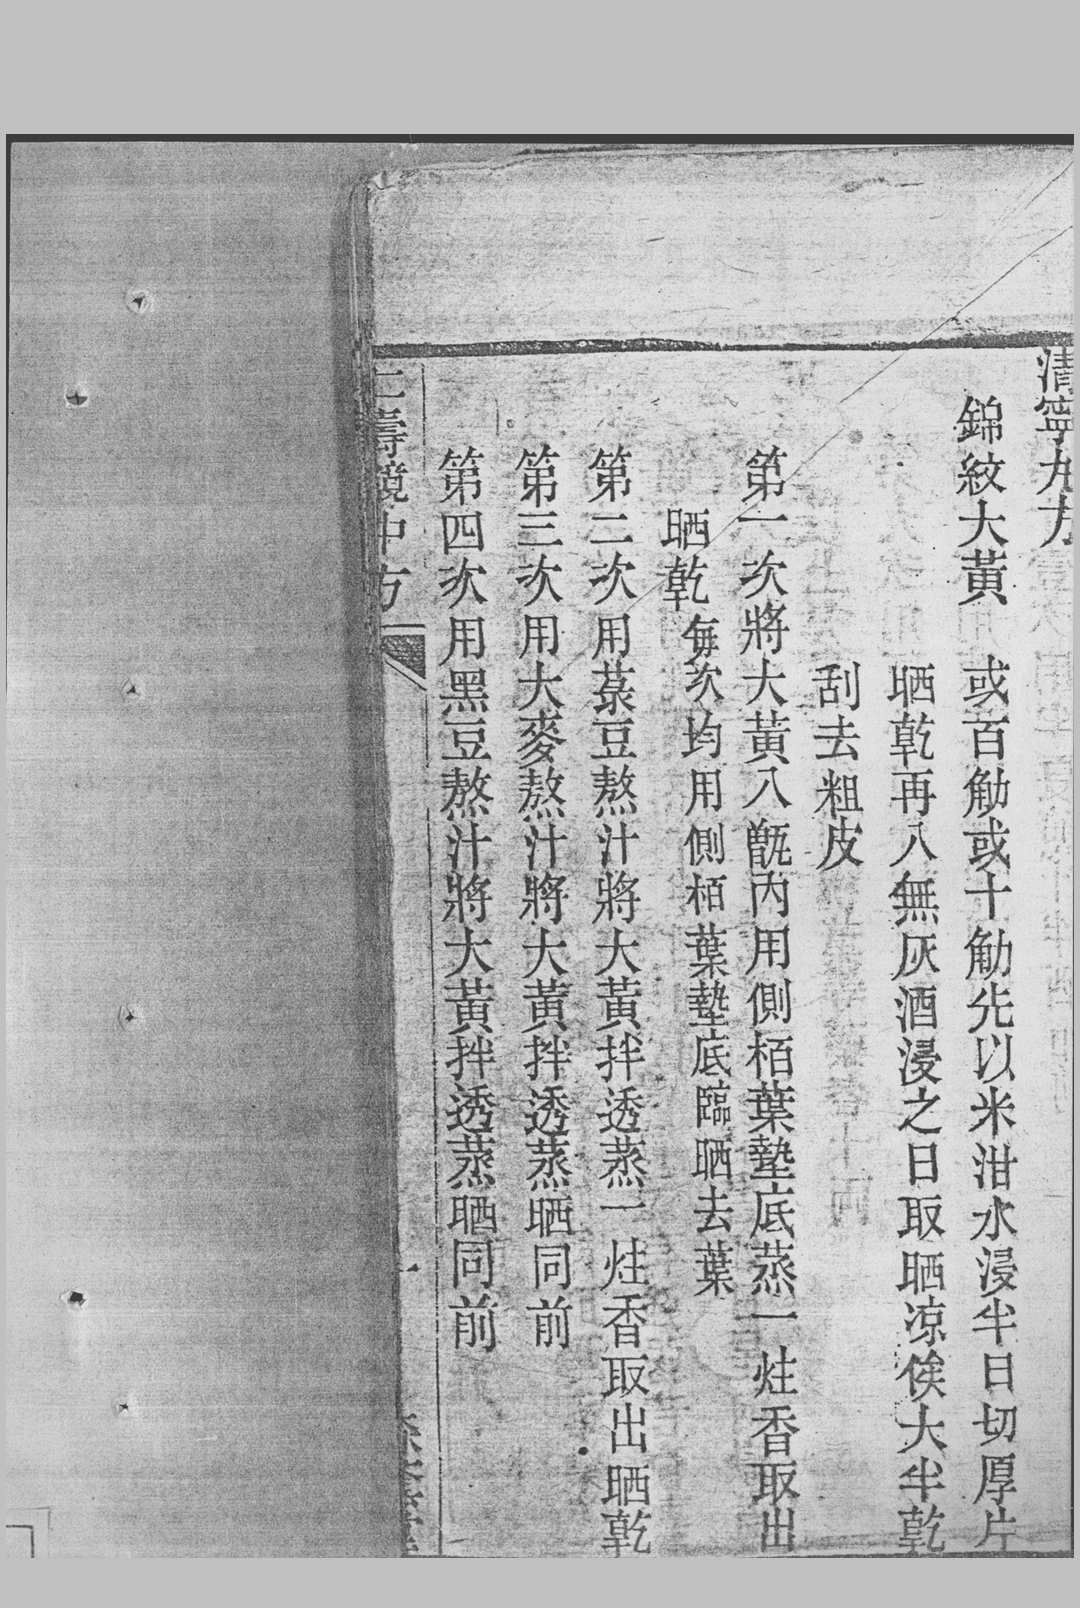 清寧丸方
錦紋大黃　或百觔或十觔先以米泔水浸半日切厚片
晒乾再入無灰酒浸之日取晒凉俟大半乾
刮去粗皮
第一次將大黃入甑內用側栢葉墊底蒸一炷香取出
晒乾每次均用側栢葉墊底臨晒去葉
第二次用菉豆熬汁將大黃拌透蒸一炷香取出晒乾
第三次用大麥熬汁將大黃拌透蒸晒同前
第四次用黑豆熬汁將大黃拌透蒸晒同前
仁壽鏡中方　一